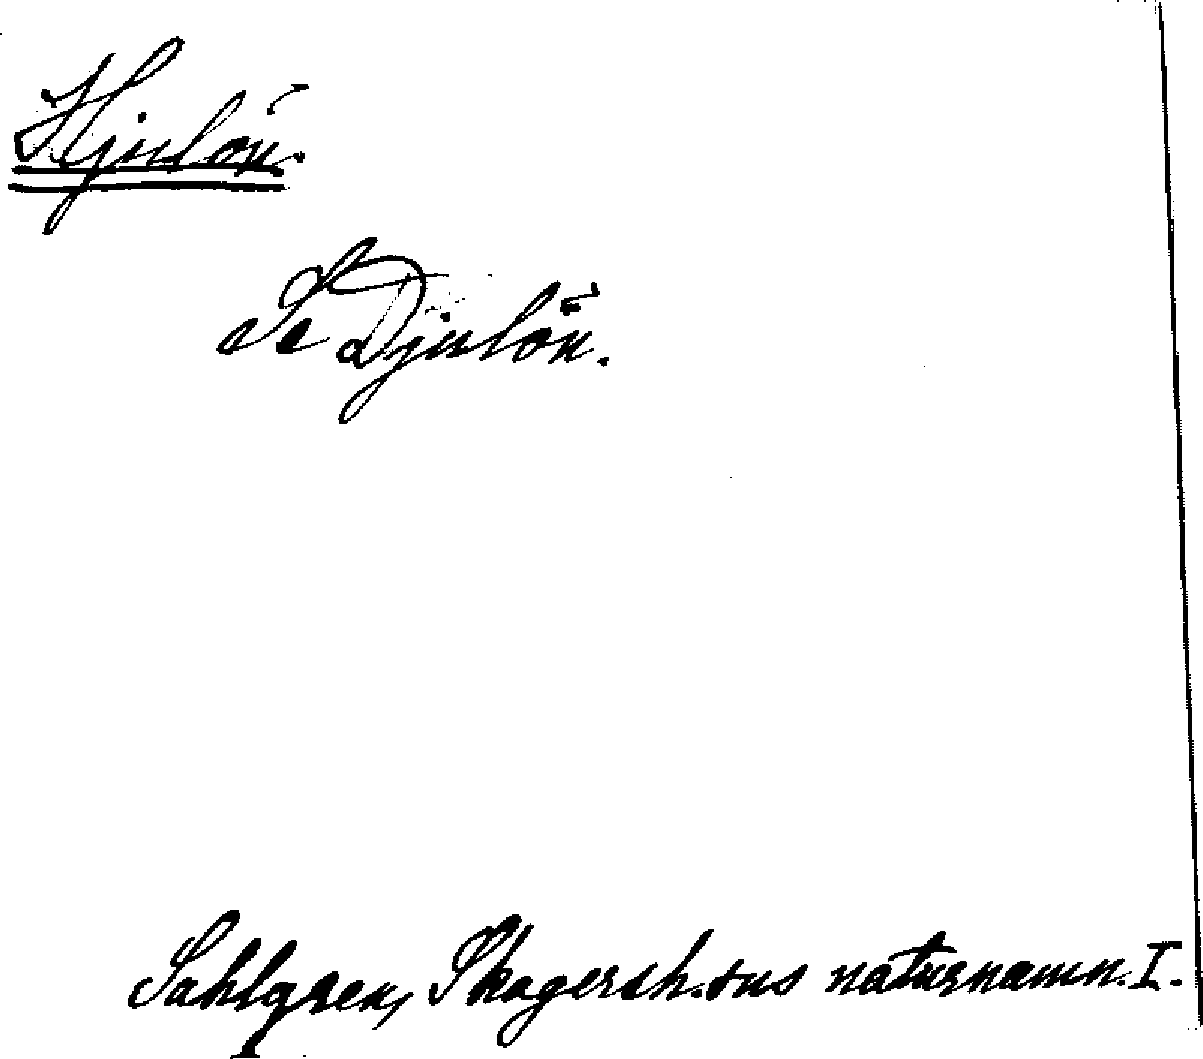 Hjulön.
Se Djulön.
Sahlgren, Skagersh.sns naturnamn. I.